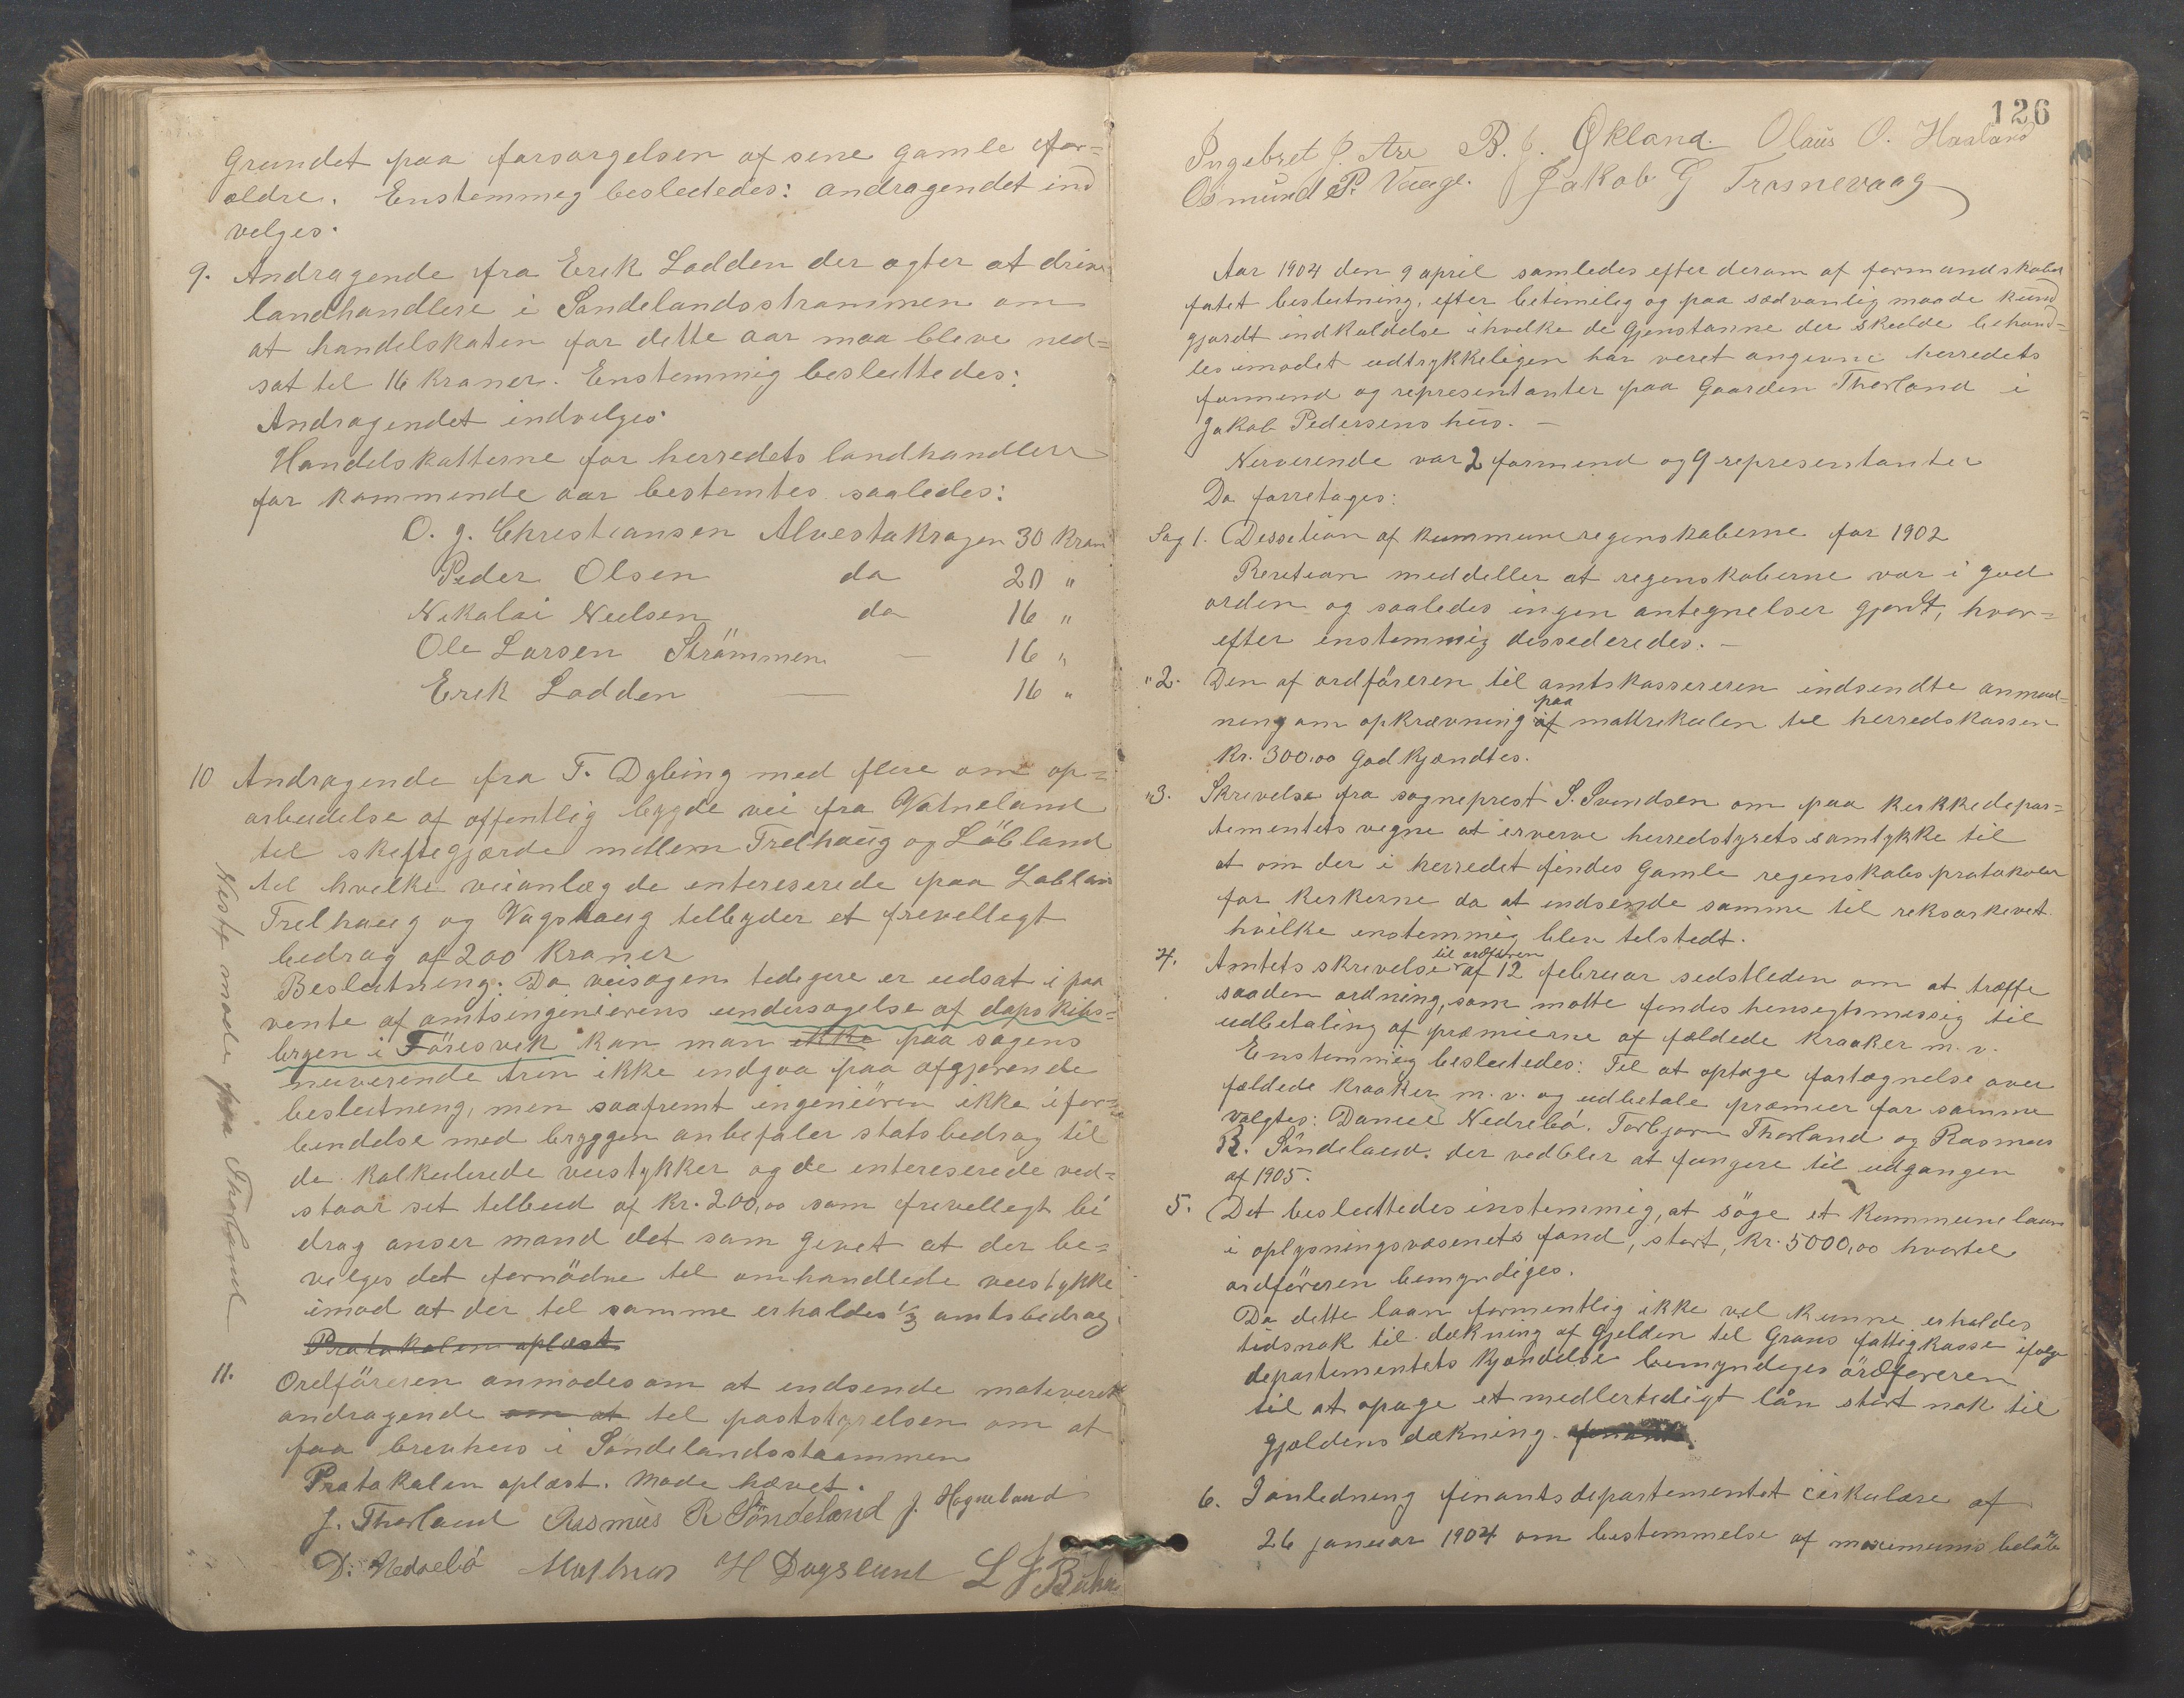 Grundet paa forsørgelsen af sine gamle for-
ældre. Enstemmig besluttedes: andragendet ind
velges.
9. Andragende fra Erik Lodden der agter at drive
landhandleri i Søndelandsstrømmen om
at handelskaten for dette aar maa blive ned=
sat til 16 kroner. Enstemmig besluttedes:
Andragendet indvelges
Handelskatterne for herredets landhandlere
for kommende aar bestemtes saaledes:
O. J. Christiansen Alvestakrogen 30 kron
Peder Olsen do 20 "
Nikolai Nielsen do 16 "
Ole Larsen Strömmen — 16 "
Erik Lodden — 16 "
10 Andragende fra T. Dybing med flere om op=
arbeidelse af offentlig bygde vei fra Vatneland
til skiftegjærde mellem Trelhaug og Löbland
til hvilke veianlæg de intereserede paa Lobland
Trelhaug og Vagshaug tilbyder et frevelligt
bedrag af 200 kroner
Beslutning. Da veisagen tidligere er udsat i paa
vente af amtsingeniørens undersøgelse af dapskibs=
brygen i Föresvik kan man ikke paa sagens
nuverende trin ikke indgaa paa afgjørende
beslutning, men saafremt ingeniören ikke i for=
bindelse med bryggen anbefaler statsbedrag til
de kalkulerede veistykker og de intereserede ved=
staar set tilbud af kr. 200,00 som frevelligt bi
drag anser mand det som givet at der be=
vilges det fornödne til omhandlede veistykke
imod at der til samme erholdes 1/3 amtsbedrag
Protokolen oplæst
11. Ordföreren anmodes om at indsende motiveret
andragende om at til poststyrelsen om at
faa brevhus i Söndelandsstrømmen
Protokolen oplæst. Møde hævet.
J. Thorland Rasmus R Söndeland J. Hogneland
D. Nedrebö Mathias H Dagsland L J Bukn
Neste møde paa Thorland
126
Ingebret J. Are B. J. Økland. Olaus O. Hauland
Osmund P. Vaage. Jakob G Trosnevaag
Aar 1904 den 9 april samledes efter derom af formandskabet
fatet beslutning, efter betimelig og paa sædvanlig maade kund
gjordt indkaldelse ihvilke de Gjenstanne der skulde behand=
les imødet udtrykkeligen har veret angivne herredets
formend og representanter paa Gaarden Thorland i
Jakob Pedersens hus. —
Nerverende var 2 formend og 9 representanter
Da forretages:
Sag 1. Dessetion af kommuneregnskaberne for 1902
Revetion meddeller at regnskaberne var i god
orden og saaledes ingen antegnelser gjordt, hvor=
efter enstemmig dessederedes. —
"2. Den af ordföreren til amtskassereren indsendte anmod=
ning om opkrævning af paa mattrikulen til herredskassen
kr. 300,00 godkjændtes.
"3. Skrivelse fra sogneprest S. Svendsen om paa kirkkedepar=
tementets vegne at erverve herredstyrets samtykke til
at om der i herredet findes gamle regnskabsprotokoler
for kirkerne da at indsende samme til reksarkivet
hvilke enstemmig blev tilstedt.
4. Amtets skrivelse til ordføren af 12 februar sidstleden om at træffe
saaden ordning, som maatte findes hensigtsmessig til
udbetaling af præmierne af fældede kraaker m. v.
Enstemmig besluttedes: Til at optage fortegnelse over
fældede kraaker m. v. og udbetale præmier for samme
valgtes: Daniel Nedrebö. Torbjørn Thorland og Rasmus
R. Söndeland. der vedbler at fungere til udgangen
af 1905.
5. Det besluttedes instemmig, at söge et kommunelaan
i oplysningsvæsenets fond, stort, kr. 5000,00 hvortil
ordföreren bemyndiges.
Da dette laan formentlig ikke vel kunne erholdes
tidsnok til dækning af gjelden til Grans fattigkasse ifølge
departementets kjendelse bemyndiges ordføreren
til at opage et medlertidigt lån stort nok til
gjældens dækning.
6. I anledning finantsdepartementet cirkulære af
26 januar 1904 om bestemmelse af maximums beløb